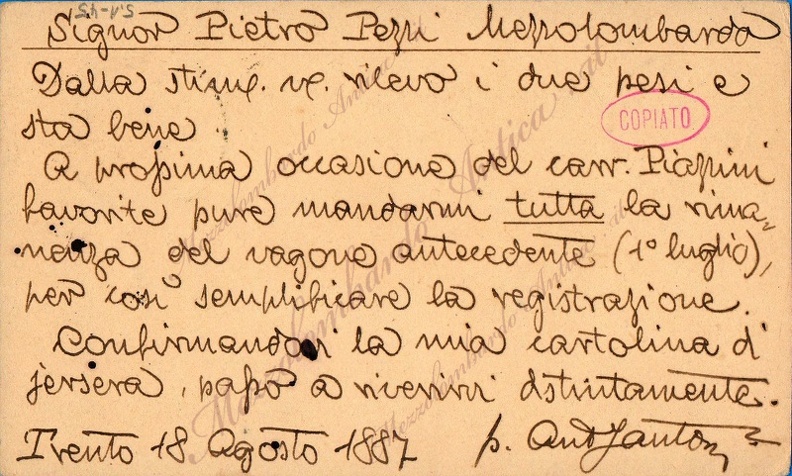 5-1-45
Signor Pietro Pezzi Mezzolombardo
Dalla stim. vs. rilevo i due pesi e
sta bene.
COPIATO
A prossima occasione del carr. Piazzini
favorite pure mandarmi tutta la rima-
nenza del vagone antecedente (1º luglio),
per così semplificare la registrazione.
Confirmandovi la mia cartolina di
jersera, passo a riverirvi distintamente.
Trento 18 Agosto 1887 p. Ant
Mezzolombardo Antica
Mezzolombardo Antica
Mezzolombardo Antica